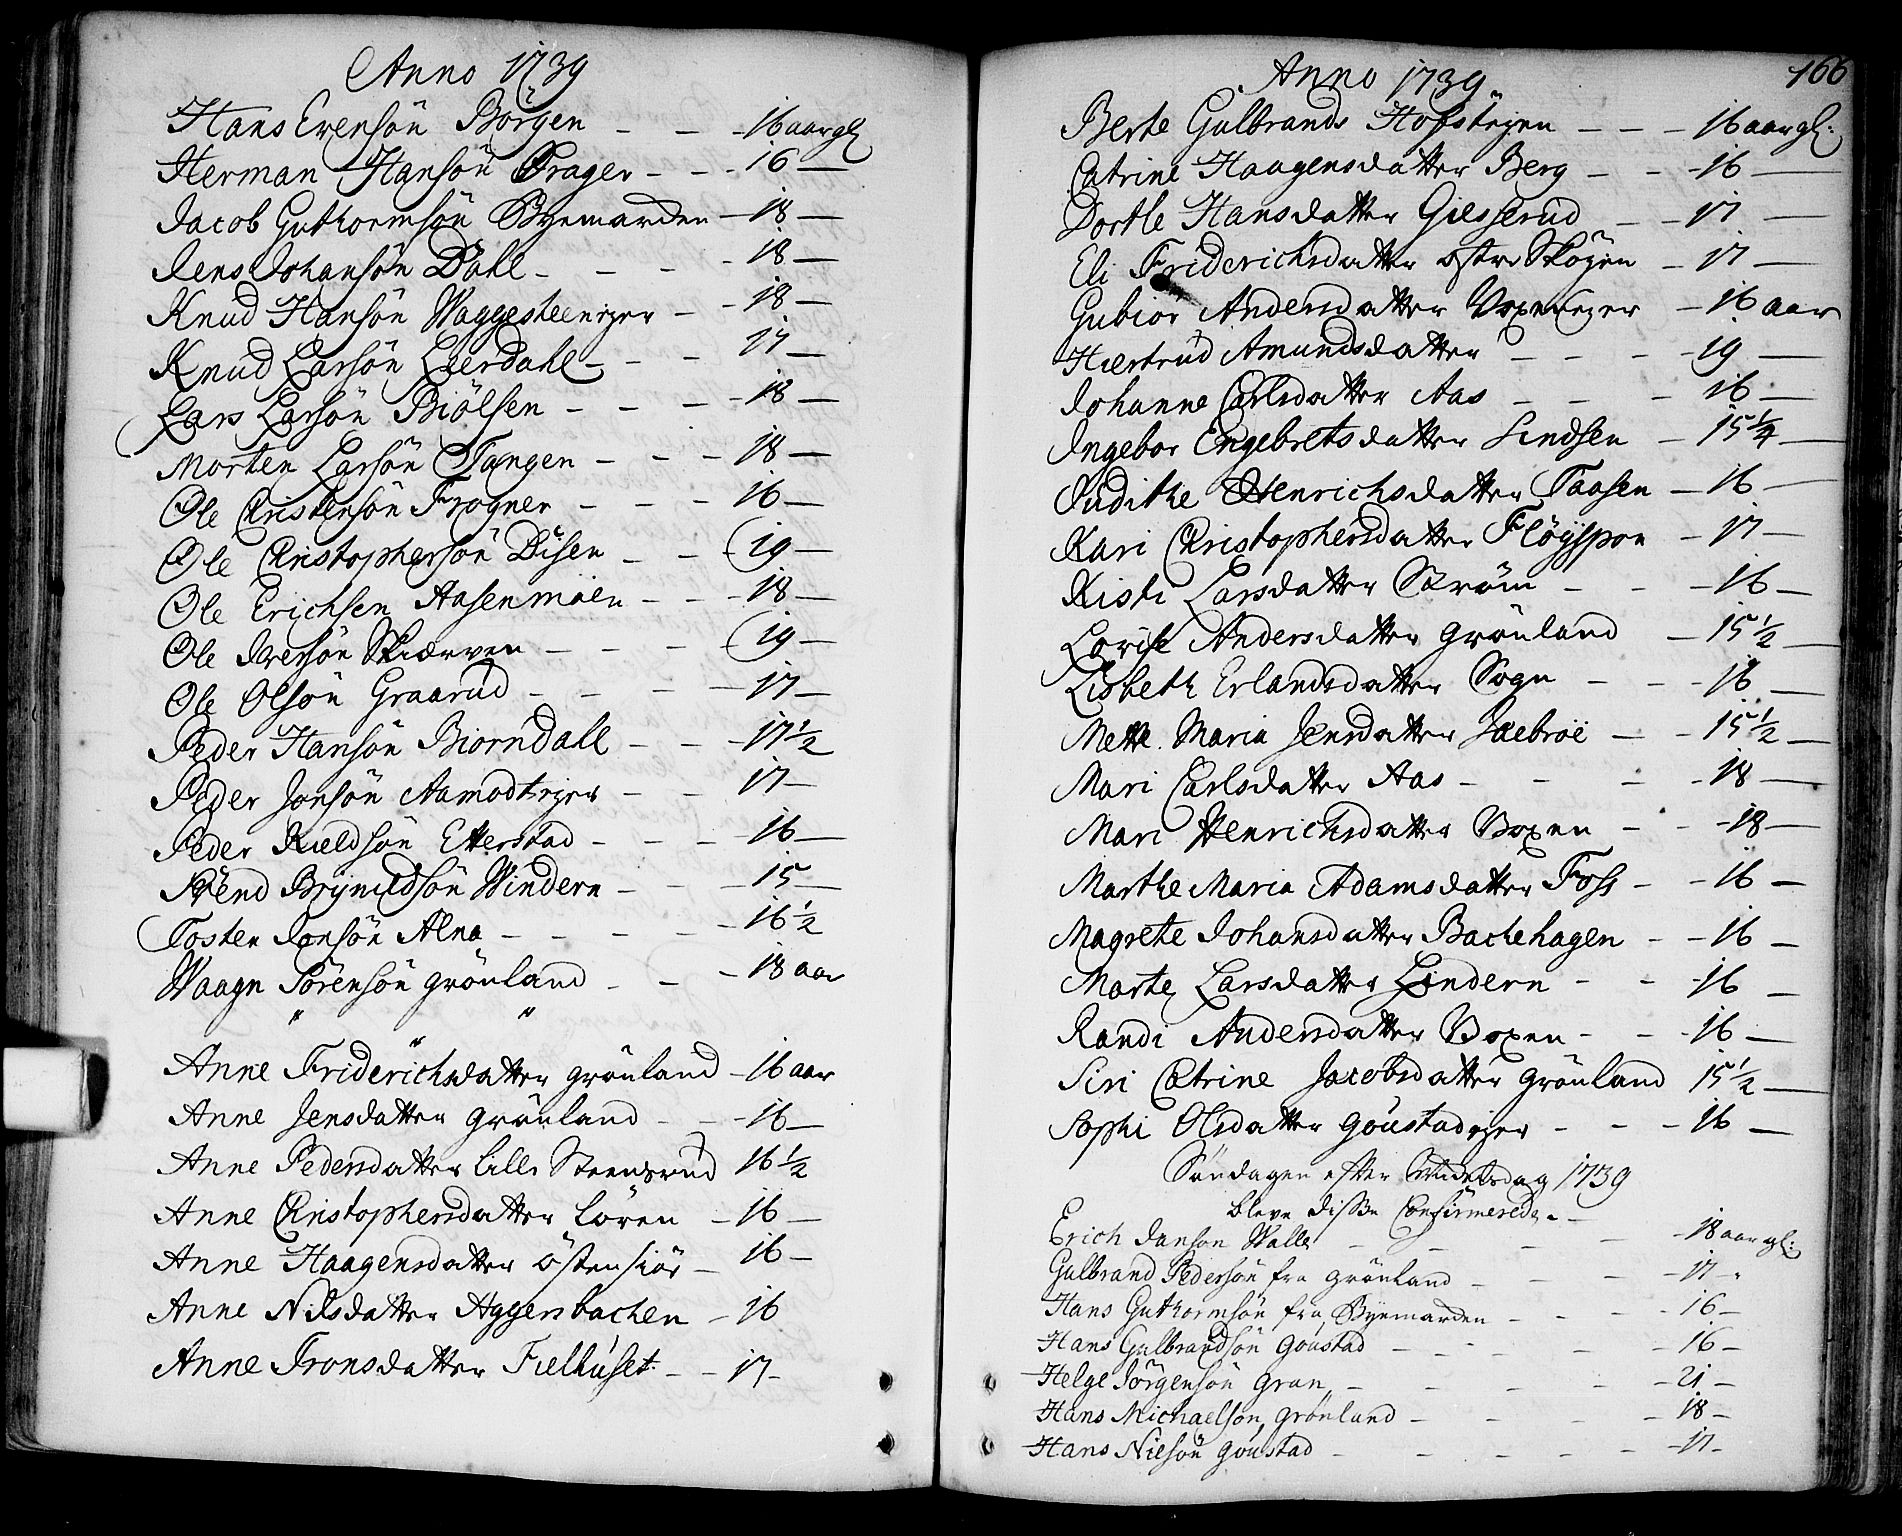 Anno 1739
Hans Evensön Börgen - - - 16 aar gl
Herman Hansön Prager - - - 16 —
Jacob Guthormsön Byemarcken - 18 —
Jens Johansön Dahl - - - - 18 —
Knud Hansön Waggesteeneyer - - 18 —
Knud Larsön Leerdahl - - - 17 —
Lars Larsön Biölsen - - - - 18 —
Morten Larsön Tangen - - - 18 —
Ole Christensön Frogner - - - 16 —
Ole Christophersön Disen - - - 19 —
Ole Erichsen Aasenmöien - - - 18 —
Ole Iversön Skiærven - - - - 19 —
Ole Olsön Graarud - - - - 17 —
Peder Hansön Biörndall - - - 17 1/2
Peder Jonsön Aamodteyer - - - 17 —
Peder Kieldsön Etterstad - - - 16 —
Svend Brynildsön Windern - - - 15 —
Tosten Jonsön Alna - - - - - 16 1/2
Waagn Sörensön Grönland - - - 18 aar
Anne Friderichsdatter Grönland - 16 aar
Anne Jensdatter Grönland - - - 16 —
Anne Pedersdatter Lille Steensrud 16 1/2
Anne Christophersdatter Lören - 16 —
Anne Haagensdatter Östensiör - 16 —
Anne Nilsdatter Aggersbachen - 16
Anne Tronsdatter Fielhuset - - 17 -
Anno 1739
166
Berte Gulbrands Hofsteyen - - - 16 aar gl:
Catrine Haagensdatter Berg - - - 16 —
Dorthe Hansdatter Giesserud - - 17 —
Eli Friderichsdatter östre Skögen - 17 —
Gubiör Andersdatter Voxeneyer - 16 aar
Hiertrud Amundsdatter - - - - 19 —
Johanne Carlsdatter Aas - - - 16 —
Ingebor Engebretsdatter Lindsen - 15 1/4 —
Judithe Henrichsdatter Taasen - 16 —
Kari Christophersdatter Flöyspon - 17 —
Kisti Larsdatter Ström - - - 16 —
Lovise Andersdatter Grönland - 15 1/2 —
Lisbeth Erlandsdatter Sogn - - - 16 —
Mette Maria Jensdatter Ladebroe - - 15 1/2 —
Mari Carlsdatter Aas - - - - 18 —
Mari Henrichsdatter Voxen - - - 18 —
Marthe Maria Adamsdatter Foss - - 16 —
Magrete Johansdatter Bachehagen - - 16 —
Marte Larsdatter Lindern - - - 16 —
Randi Andersdatter Voxen - - - 16 —
Siri Catrine Jacobsdatter Grönland 15 1/2 —
Sophi Olsdatter Goustadeyer - - - 16 —
Söndagen efter 1739
bleve disse Confirmerede. -
Erich Jansön Walle - - - - - 18 aar gl:
Gulbrand Pedersön fra Grönland - - - - 17 - "
Hans Guthormsön fra Byemarcken - - - - 16 —
Hans Gulbrandsön Goustad - - - - - - 16 —
Helge Jörgensön Gran - - - - - 21 —
Hans Michaelsön, Grönland - - - - - 18 —
Hans Nielsön Goustad - - - - - - 17 -